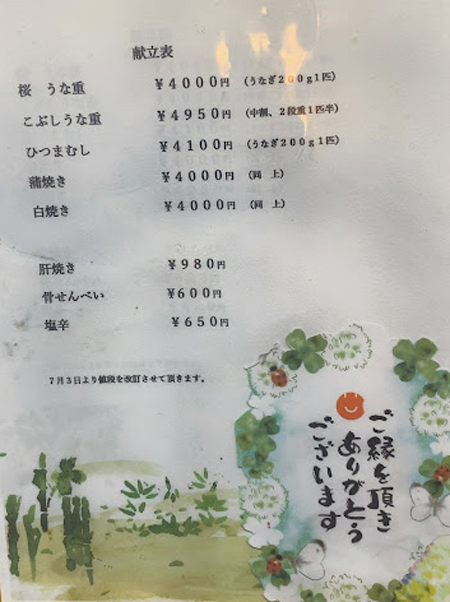 献立表
桜　うな重　￥4000円　（うなぎ200g1匹）
こぶしうな重　￥4950円　（中割、2段重1匹半）
ひつまむし　￥4100円　（うなぎ200g1匹）
蒲焼き　￥4000円　（同　上）
白焼き　￥4000円　（同　上）
肝焼き　￥980円
骨せんべい　￥600円
塩辛　￥650円
7月3日より値段を改訂させて頂きます。
ご縁を頂き
ありがとう
ございます